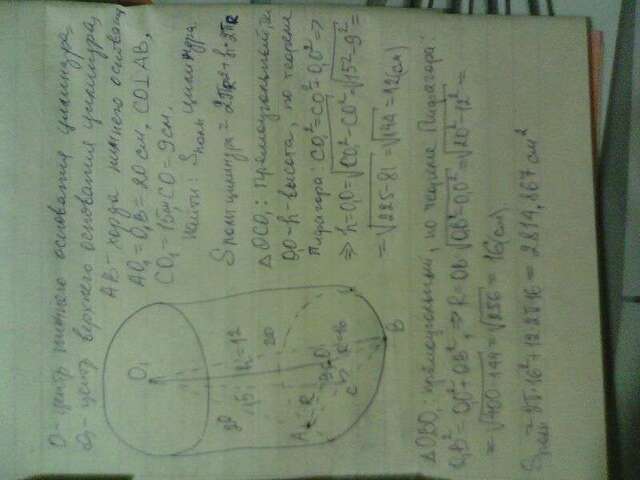 O - центр нижнего основания цилиндра,
O₁ - центр верхнего основания цилиндра,
AB - хорда нижнего основания
AO₁ = O₁B = 20 см, CO ⊥ AB,
CO₁ = 15см CO = 9 см.
Найти: Sполн цилиндра.
Sполн цилиндра = 2πR² + h·2πR
△OCO₁: прямоугольный, т.к.
O₁O - h - высота, по теореме
Пифагора: CO₁² = CO² + O₁O² ⇒
⇒ h = O₁O = √CO₁² - CO² = √15² - 9² =
= √225 - 81 = √144 = 12 (см)
O₁
20
15
h = 12
20
A
R
9
O
C
R = 16
B
△OBO₁ прямоугольный, по теореме Пифагора:
O₁B² = OO₁² + OB², ⇒ R = OB = √O₁B² - O₁O² = √20² - 12² =
= √400 - 144 = √256 = 16 (см).
Sполн = 2π·16² + 12·2π·16 = 2814,867 см²